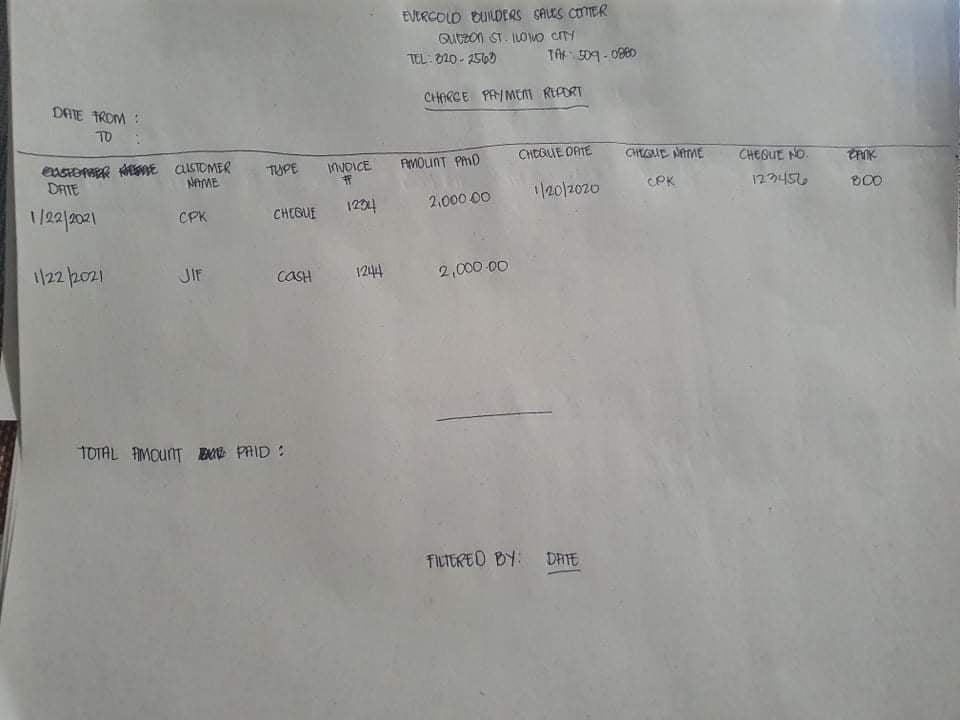 EVERGOLD BUILDERS SALES CENTER
QUEZON ST. ILOILO CITY
TEL: 320-2568 FAX: 509-0880
CHARGE PAYMENT REPORT
DATE FROM :
TO :
DATE CUSTOMER NAME TYPE INVOICE # AMOUNT PAID CHEQUE DATE CHEQUE NAME CHEQUE NO. BANK
1/22/2021 CPK CHEQUE 1234 2,000.00 1/20/2020 CPK 123456 BDO
1/22/2021 JIF CASH 1244 2,000.00
TOTAL AMOUNT PAID :
FILTERED BY: DATE